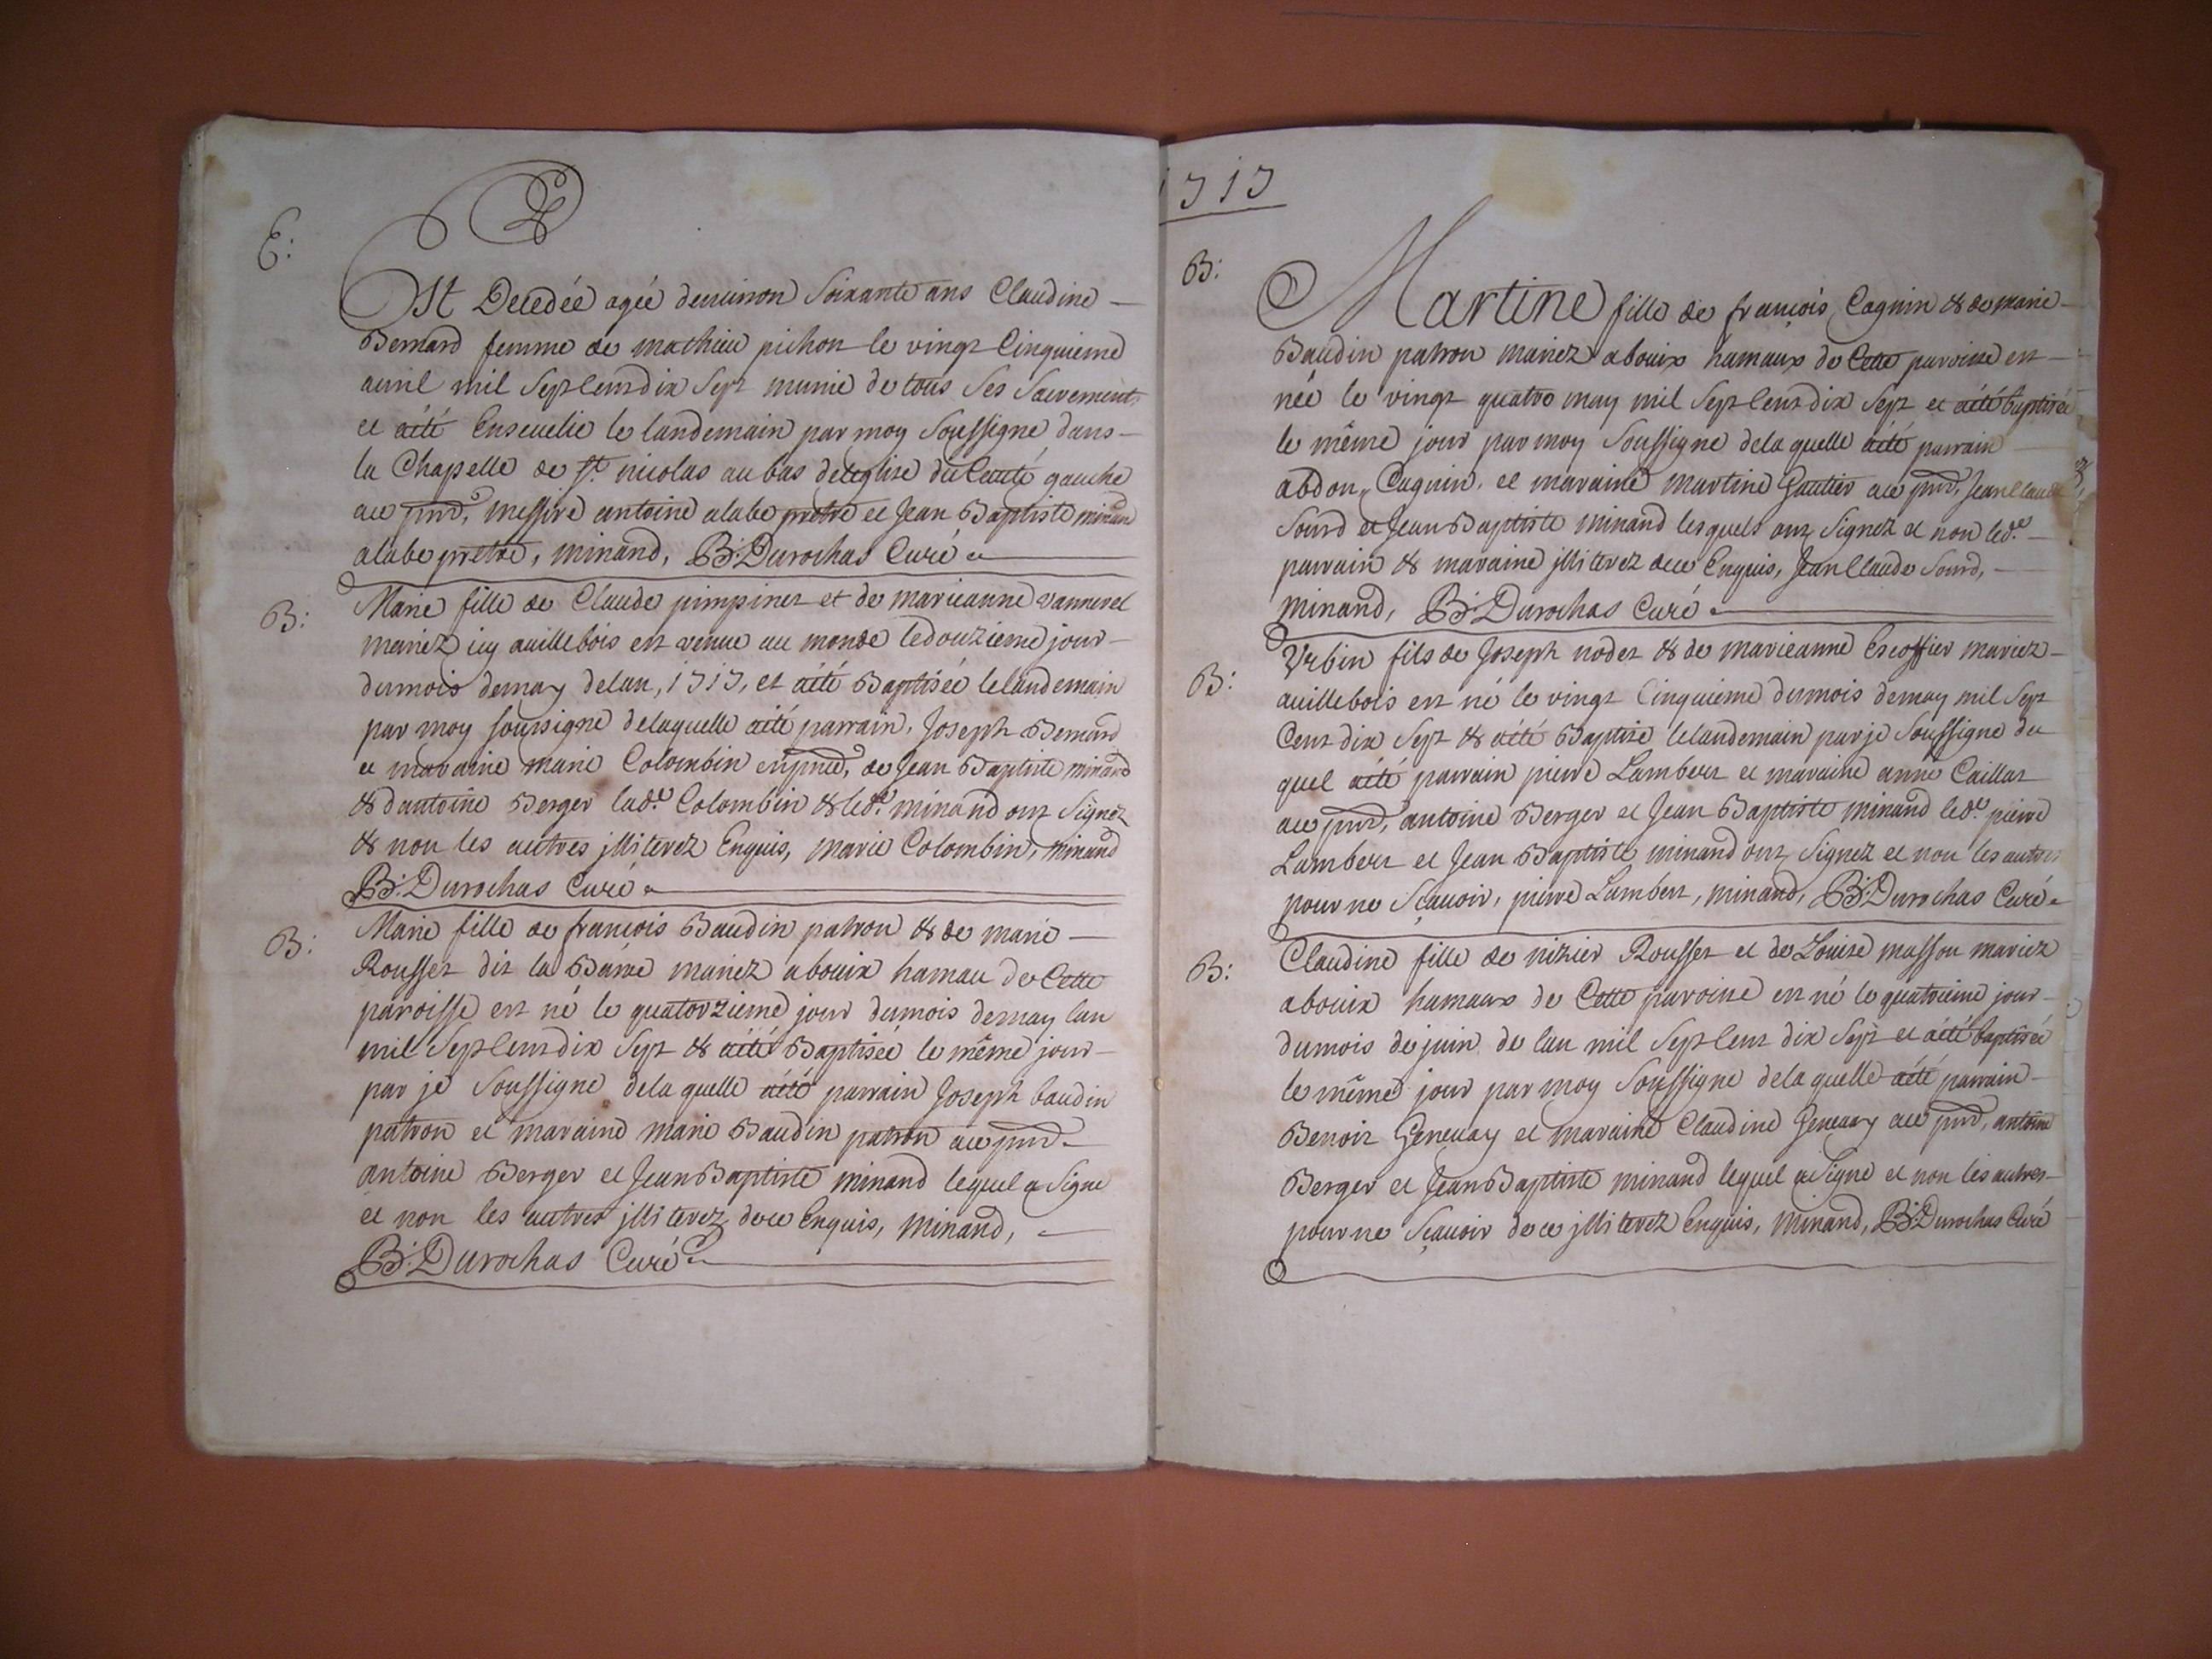 E:
Est Decedée agée denuiron Soixante ans Claudine
Bernard femme de mathieu pichon le vingt Cinquieme
auril mil Sept Cens dix Sept munie de tous Ses Sacrements
et aété Enseuelie le landemain par moy Soussigne dans
la Chapelle de St. nicolas au bas deleglise du Cauté gauche
ace pnd, messire antoine alabe pretre et Jean Baptiste minand
alabe pretre, minand, B: Durochas Curé
B:
Marie fille de Claude pimpinet et de marieanne vannerel
mariez icy auillebois est venue au monde ledouzieme jour
dumois demay delan, 1717, et aété Baptisée lelandemain
par moy sousigne delaquelle aité parrain, Joseph Bernard
et maraine marie Colombin enpned, de Jean Baptiste minand
& dantoine Berger lad.e Colombin & led.e minand ont Signéz
& non les autres jlliterez Enquis, marie Colombin, minand
B: Durochas Curé
B:
Marie fille de françois Baudin patron & de marie
Rousset dit la mariez abouix hamau de Cette
paroisse est né le quatorzieme jour dumois demay lan
mil Sept Cens dix Sept & aété Baptisée le même jour
par je Soussigne dela quelle aété parrain Joseph baudin
patron et maraine marie Baudin patron ace pnd
antoine Berger et Jean Baptiste minand lequel a Signe
et non les autres jlliterez dece Enquis, minand,
B: Durochas Curé
1717
B:
Martine fille de françois Cagnin & de marie
Baudin patron mariez abouix hamaux de Cette paroisse est
née le vingt quatre may mil Sept Cens dix Sept et aété baptisée
le même jour par moy Soussigne dela quelle aété parrain
abdon Cagnin, et maraine martine Gautier ace pnd, Jean Claude
Sourd et Jean Baptiste minand lesquels ont Signez et non led.e
parrain & maraine jlliterez dece Enquis, Jean Claude Sourd,
minand, B: Durochas Curé
B:
Vrbin fils de Joseph nodet & de marieanne Escoffier mariez
auillebois est né le vingt Cinquieme dumois demay mil Sept
Cent dix Sept & aété Baptisé lelandemain par je Soussigne du
quel aété parrain pierre Lambert et maraine anne Caillat
ace pnd, antoine Berger et Jean Baptiste minand led.e pierre
Lambert et Jean Baptiste minand ont Signez et non les autres
pour ne Sçauoir, pierre Lambert, minand, B: Durochas Curé
B:
Claudine fille de nizier Rousset et de Louise masson mariez
abouix hamaux de Cette paroisse est né le quatrieme jour
dumois de juin de lan mil Sept Cent dix Sept et aété baptisée
le même jour par moy Soussigne dela quelle aété parrain
Benoit Geneuay et maraine Claudine Geneuay ace pnd, antoine
Berger et Jean Baptiste minand lequel a Signe et non les autres
pour ne Sçauoir dece jlliterez Enquis, minand, B: Durochas Curé